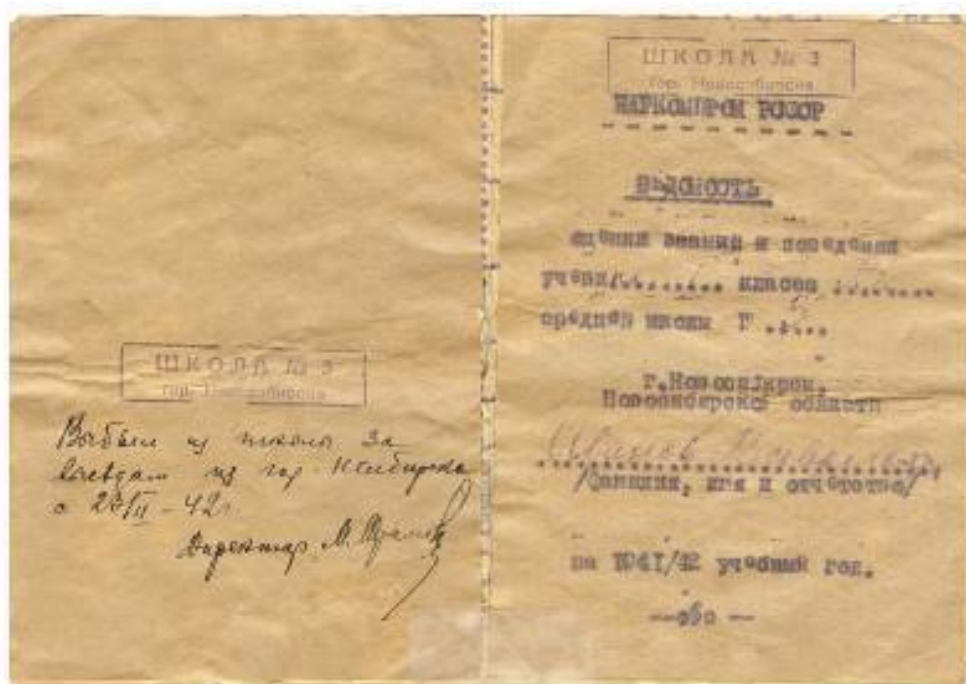 ШКОЛА № 3
гор. Новосибирска
Выбыл из школы за
выездом из гор. Н-Сибирска
с 23/II - 42 г.
Директор М.
ШКОЛА № 3
гор. Новосибирска
НАРКОМПРОС РСФСР
ВЕДОМОСТЬ
оценки знаний и поведения
учени......... класса .........
средней школы № .....
г.Новосибирск.
Новосибирской области
/фамилия, имя и отчество/
на 1941/42 учебный год.